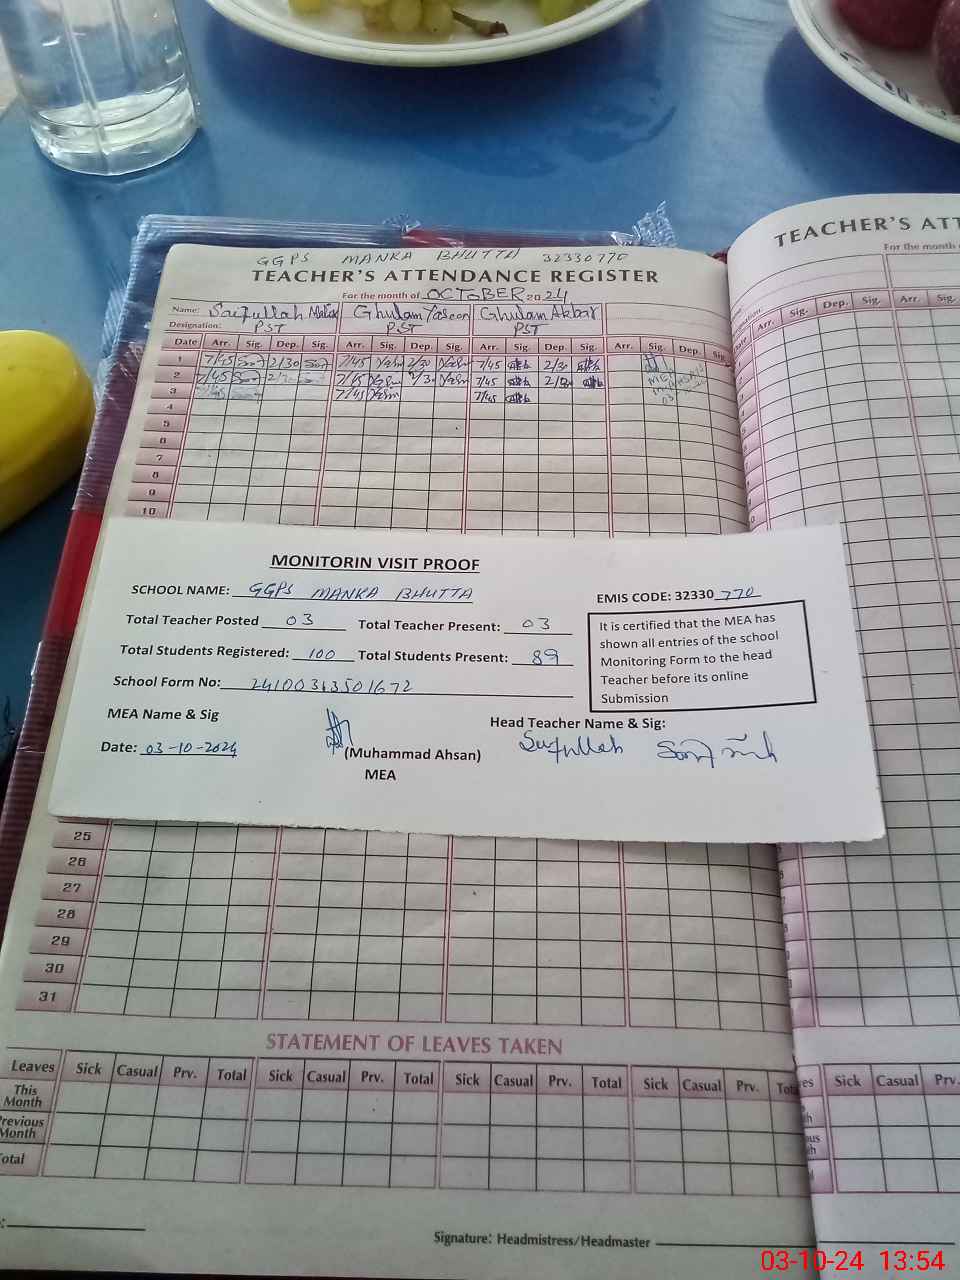 GGPS MANKA BHUTTA 32330770
TEACHER'S ATTENDANCE REGISTER
For the month of OCTOBER 2024
Name: Saifullah Malik Ghulam Yaseen Ghulam Akbar
Designation: PST PST PST
Date Arr. Sig. Dep. Sig. Arr. Sig. Dep. Sig. Arr. Sig. Dep. Sig. Arr. Sig. Dep. Sig.
1 7/45 2/30 7/45 2/30 7/45 2/30
2 7/45 2/30 7/45 2/30 7/45 2/30
3 7/45 7/45 7/45
4
5
6
7
8
9
10
MONITORIN VISIT PROOF
SCHOOL NAME: GGPS MANKA BHUTTA
EMIS CODE: 32330 770
Total Teacher Posted 03 Total Teacher Present: 03
Total Students Registered: 100 Total Students Present: 89
School Form No: 24100313501672
It is certified that the MEA has
shown all entries of the school
Monitoring Form to the head
Teacher before its online
Submission
MEA Name & Sig
Head Teacher Name & Sig:
Date: 03-10-2024
(Muhammad Ahsan)
MEA
Saifullah
25
26
27
28
29
30
31
STATEMENT OF LEAVES TAKEN
Leaves Sick Casual Prv. Total Sick Casual Prv. Total Sick Casual Prv. Total Sick Casual Prv.
This
Month
Previous
Month
Total
Signature: Headmistress/Headmaster
TEACHER'S ATT
For the month
Arr. Sig. Dep. Sig. Arr. Sig.
Sick Casual Prv.
03-10-24 13:54